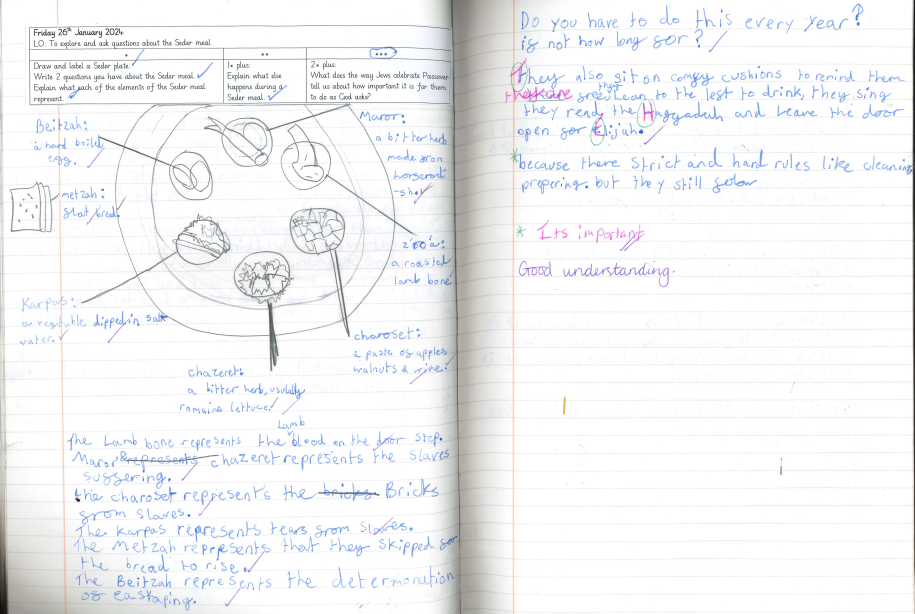 Friday 26th January 2024
LO: To explore and ask questions about the Seder meal
*
Draw and label a Seder plate.
Write 2 questions you have about the Seder meal.
Explain what each of the elements of the Seder meal
represent.
**
1* plus:
Explain what else
happens during a
Seder meal.
***
2* plus:
What does the way Jews celebrate Passover
tell us about how important it is for them
to do as God asks?
Beitzah:
a hard boiled
egg.
metzah:
flat bread.
Karpas:
a vegitable dipped in salt
water.
Maror:
a bitter herb
made from
horseraot
-sh.
z'oo'a:
a roasted
lamb bone
charoset:
a paste of apples,
walnuts & wine.
chazeret:
a bitter herb, usulally
romaine lettuce.
Lamb
The Lamb bone represents the blood on the door step.
Maror & represents chazeret represents the slaves
suffering.
the charoset represent's the bricks. Bricks
from slaves.
The Karpas represents tears from slaves.
The Metzah represents that they skipped for
the bread to rise.
The Beitzah represents the determonation
of eascaping.
Do you have to do this every year?
if not how long for?
They also sit on comfy cushions to remind them
they are free. Lean to the left to drink, they sing
they
they read the Haggadah and Leave the door
open for Elijah.
*because there strict and hard rules like cleaning,
prepering. but they still folow
* Its important
Good understanding.